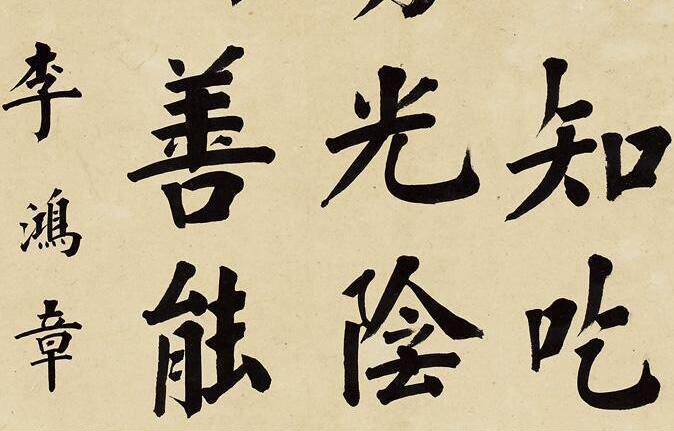 知吃
光陰
善能
李鴻章